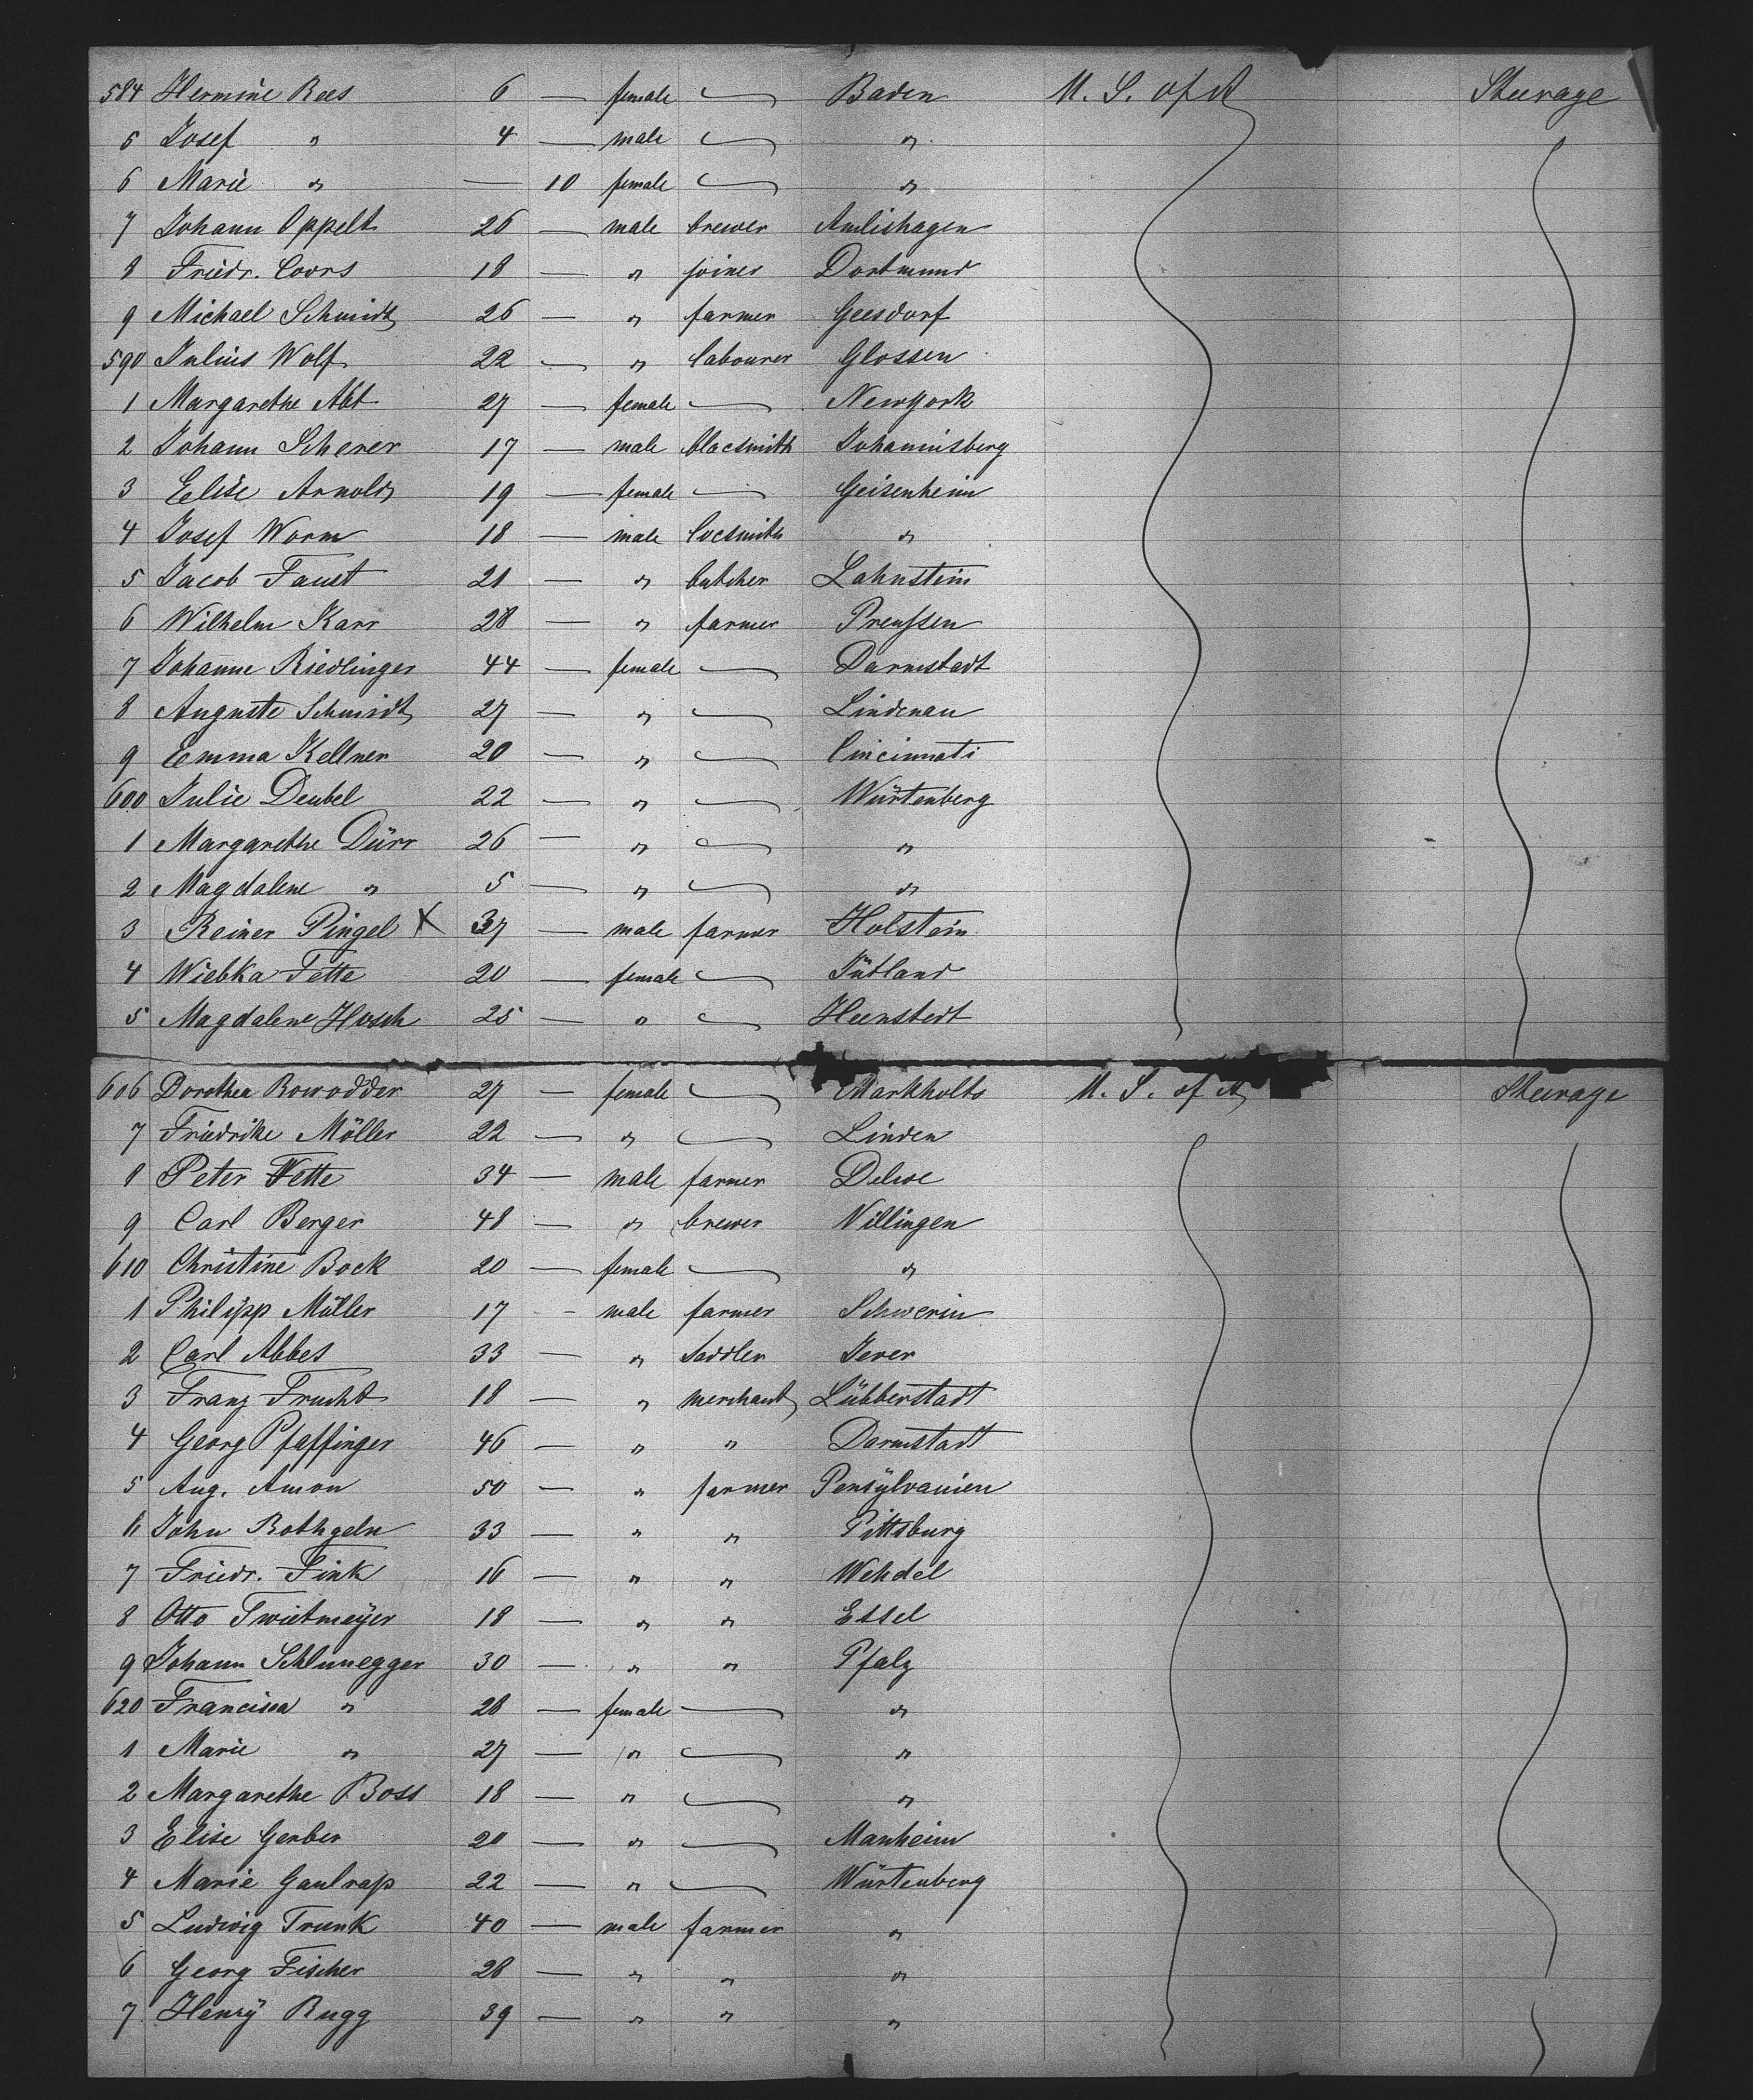 584 Hermine Rees 6 — female — Baden U. S. of A Steerage
5 Josef " 4 — male — "
6 Marie " — 10 female — "
7 Johann Oppelt 26 — male brewer Amlishagen
8 Friedr. Coors 18 — " joiner Dortmund
9 Michael Schmidt 26 — " farmer Geesdorf
590 Julius Wolf 22 — " labourer Glossen
1 Margarethe Abt 27 — female — Newyork
2 Johann Scherer 17 — male blacsmith Johannisberg
3 Elise Arnold 19 — female — Geisenheim
4 Josef Worm 18 — male locsmith "
5 Jacob Faust 21 — " butcher Lahnstein
6 Wilhelm Karr 28 — " farmer Preussen
7 Johanne Riedlinger 44 — female — Darmstadt
8 Auguste Schmidt 27 — " — Lindenau
9 Emma Kellner 20 — " — Cincinnati
600 Julie Deubel 22 — " — Würtenberg
1 Margarethe Dürr 26 — " — "
2 Magdalene " 5 — " — "
3 Reiner Pingel X 37 — male farmer Holstein
4 Wiebka Fette 20 — female — Jütland
5 Magdalene Hosch 25 — " — Heenstedt
606 Dorothea Rowodder 27 — female — Markholts U. S. of A Steerage
7 Friedrike Möller 22 — " — Linden
8 Peter Wette 34 — male farmer Delve
9 Carl Berger 48 — " brewer Villingen
610 Christine Bock 20 — female — "
1 Philipp Müller 17 - male farmer Schwerin
2 Carl Abbes 33 — " saddler Jever
3 Franz Frucht 18 — " merchant Lübberstadt
4 Georg Pfaffinger 46 — " " Darmstadt
5 Aug. Amon 50 — " farmer Pensylvanien
6 John Rothgeln 33 — " " Pittsburg
7 Friedr. Fink 16 — " " Wehdel
8 Otto Twietmeyer 18 — " " Essel
9 Johann Schlunegger 30 — " " Pfalz
620 Francisca " 28 — female — "
1 Marie " 27 — " — "
2 Margarethe Boss 18 — " — "
3 Elise Gerber 20 — " — Manheim
4 Marie Gaulrap 22 — " — Würtenberg
5 Ludwig Trunk 40 — male farmer "
6 Georg Fischer 28 — " " "
7 Henry Rugg 39 — " " "